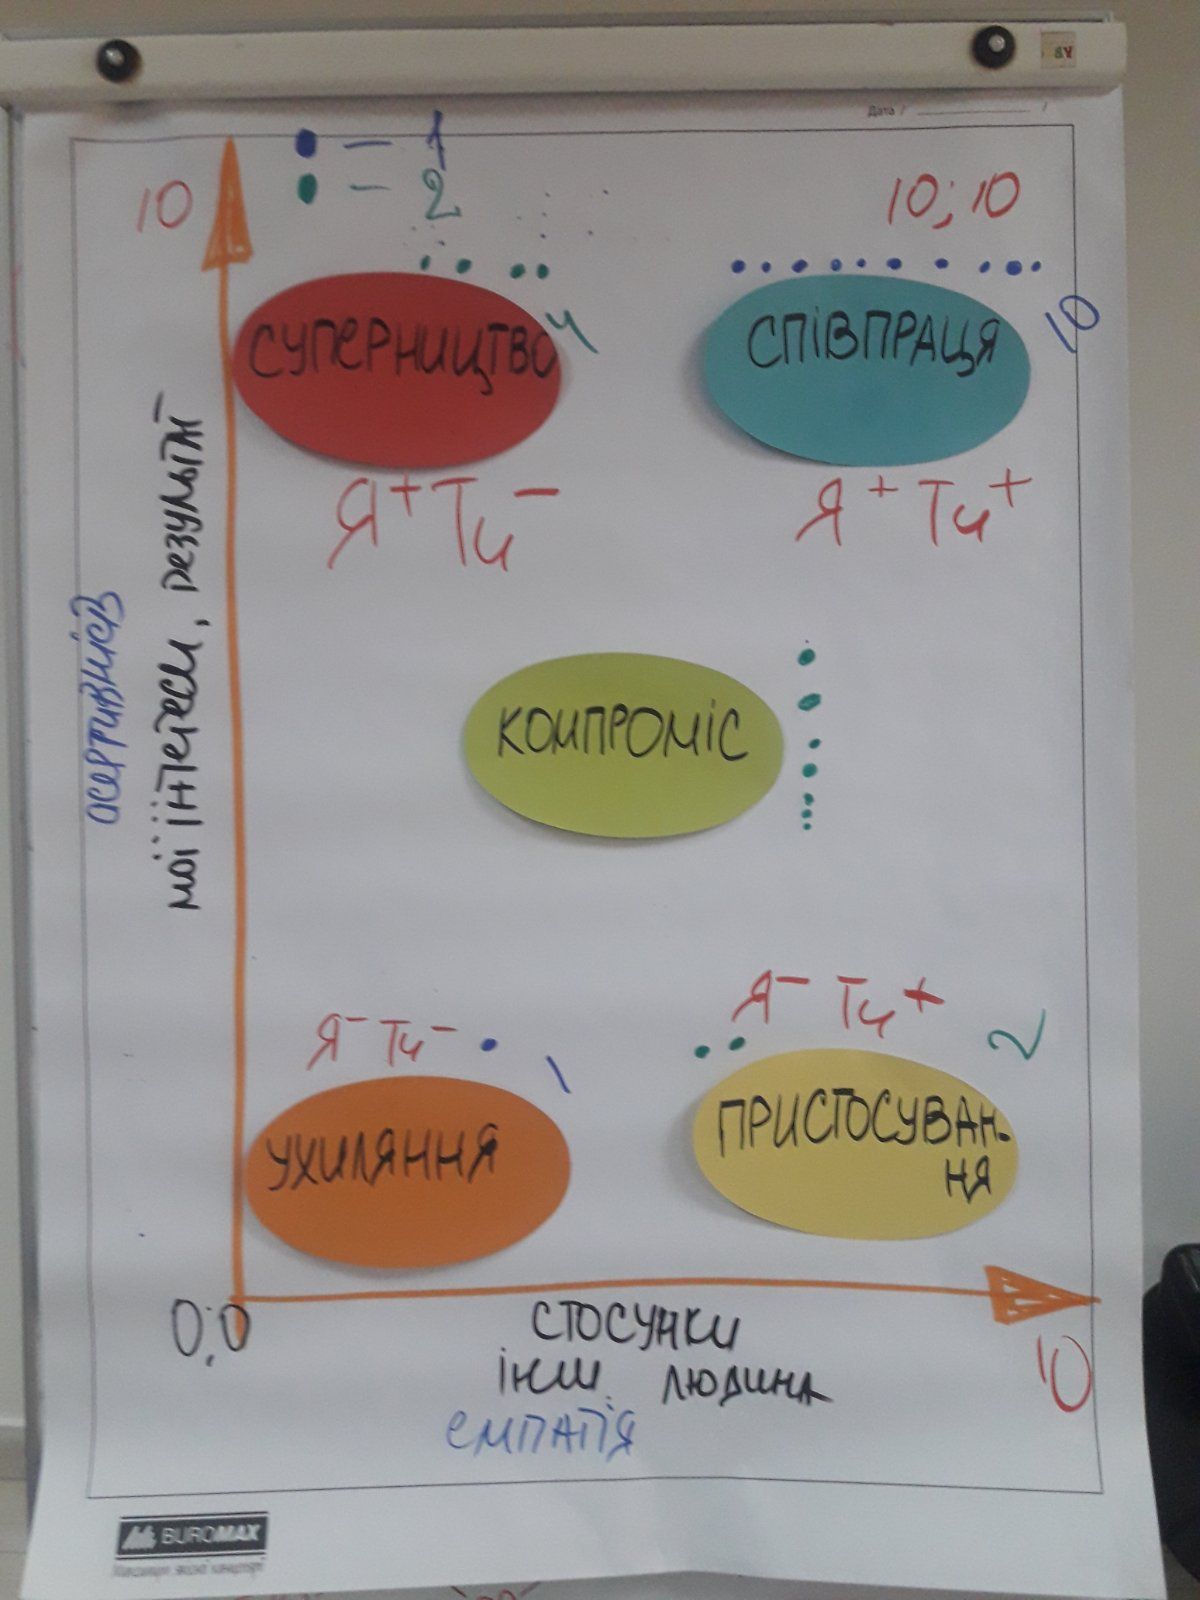 Дата
• – 1
• – 2
10
10; 10
СУПЕРНИЦТВО
4
СПІВПРАЦЯ
10
Я+ Ти–
Я+ Ти+
мої інтереси, результат
КОМПРОМІС
Я– Ти–
1
Я– Ти+
2
УХИЛЯННЯ
ПРИСТОСУВАН-
НЯ
0;0
СТОСУНКИ
інш. людина
10
емпатія
BUROMAX